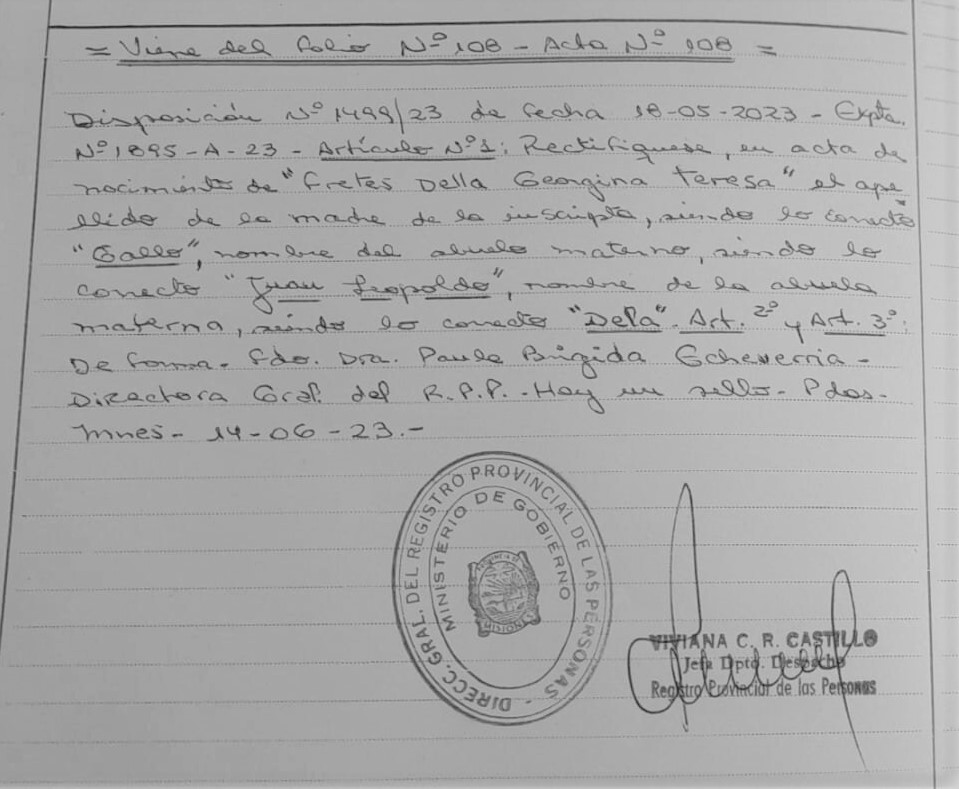 = Viene del folio Nº 108 - Acta Nº 108 =
Disposición Nº 1499/23 de fecha 18-05-2023 - Expte.
Nº 1895-A-23 - Artículo Nº 1: Rectifiquese, en acta de
nacimiento de "Fretes Della Georgina Teresa" el ape
llido de la madre de la inscripta, siendo lo correcto
"Gallo", nombre del abuelo materno, siendo lo
correcto "Juan Leopoldo", nombre de la abuela
materna, siendo lo correcto "Depa". Art. 2º y Art. 3º:
De forma. Fdo. Dra. Paula Brigida Echeverria -
Directora Gral. del R.P.P. - Hay un sello - Pdas.
Mnes - 14-06-23.-
DIRECC. GRAL. DEL REGISTRO PROVINCIAL DE LAS PERSONAS -
MINISTERIO DE GOBIERNO
PROVINCIA DE
MISIONES
VIVIANA C. R. CASTILLO
Jefa Dpto. Despacho
Registro Provincial de las Personas